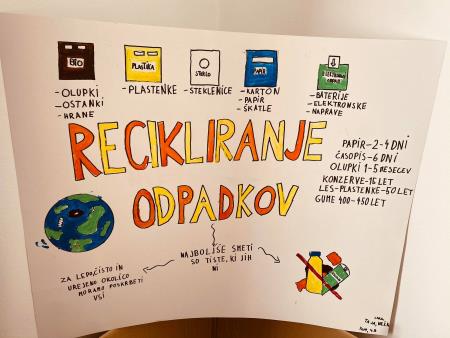 BIO
PLASTIKA
STEKLO
PAPIR
- OLUPKI,
- OSTANKI
- HRANE
- PLASTENKE
- STEKLENICE
- KARTON
- PAPIR
- ŠKATLE
- BATERIJE
- ELEKTRONSKE
NAPRAVE
RECIKLIRANJE
ODPADKOV
PAPIR-2-4 DNI
ČASOPIS-6 DNI
OLUPKI 1-5 MESECEV
KONZERVE-15 LET
LES-PLASTENKE-50 LET
GUME 400-450 LET
NAJBOLJŠE SMETI
SO TISTE, KI JIH
NI
ZA LEPO, ČISTO IN
UREJENO OKOLICO
MORAMO POSKRBETI
VSI